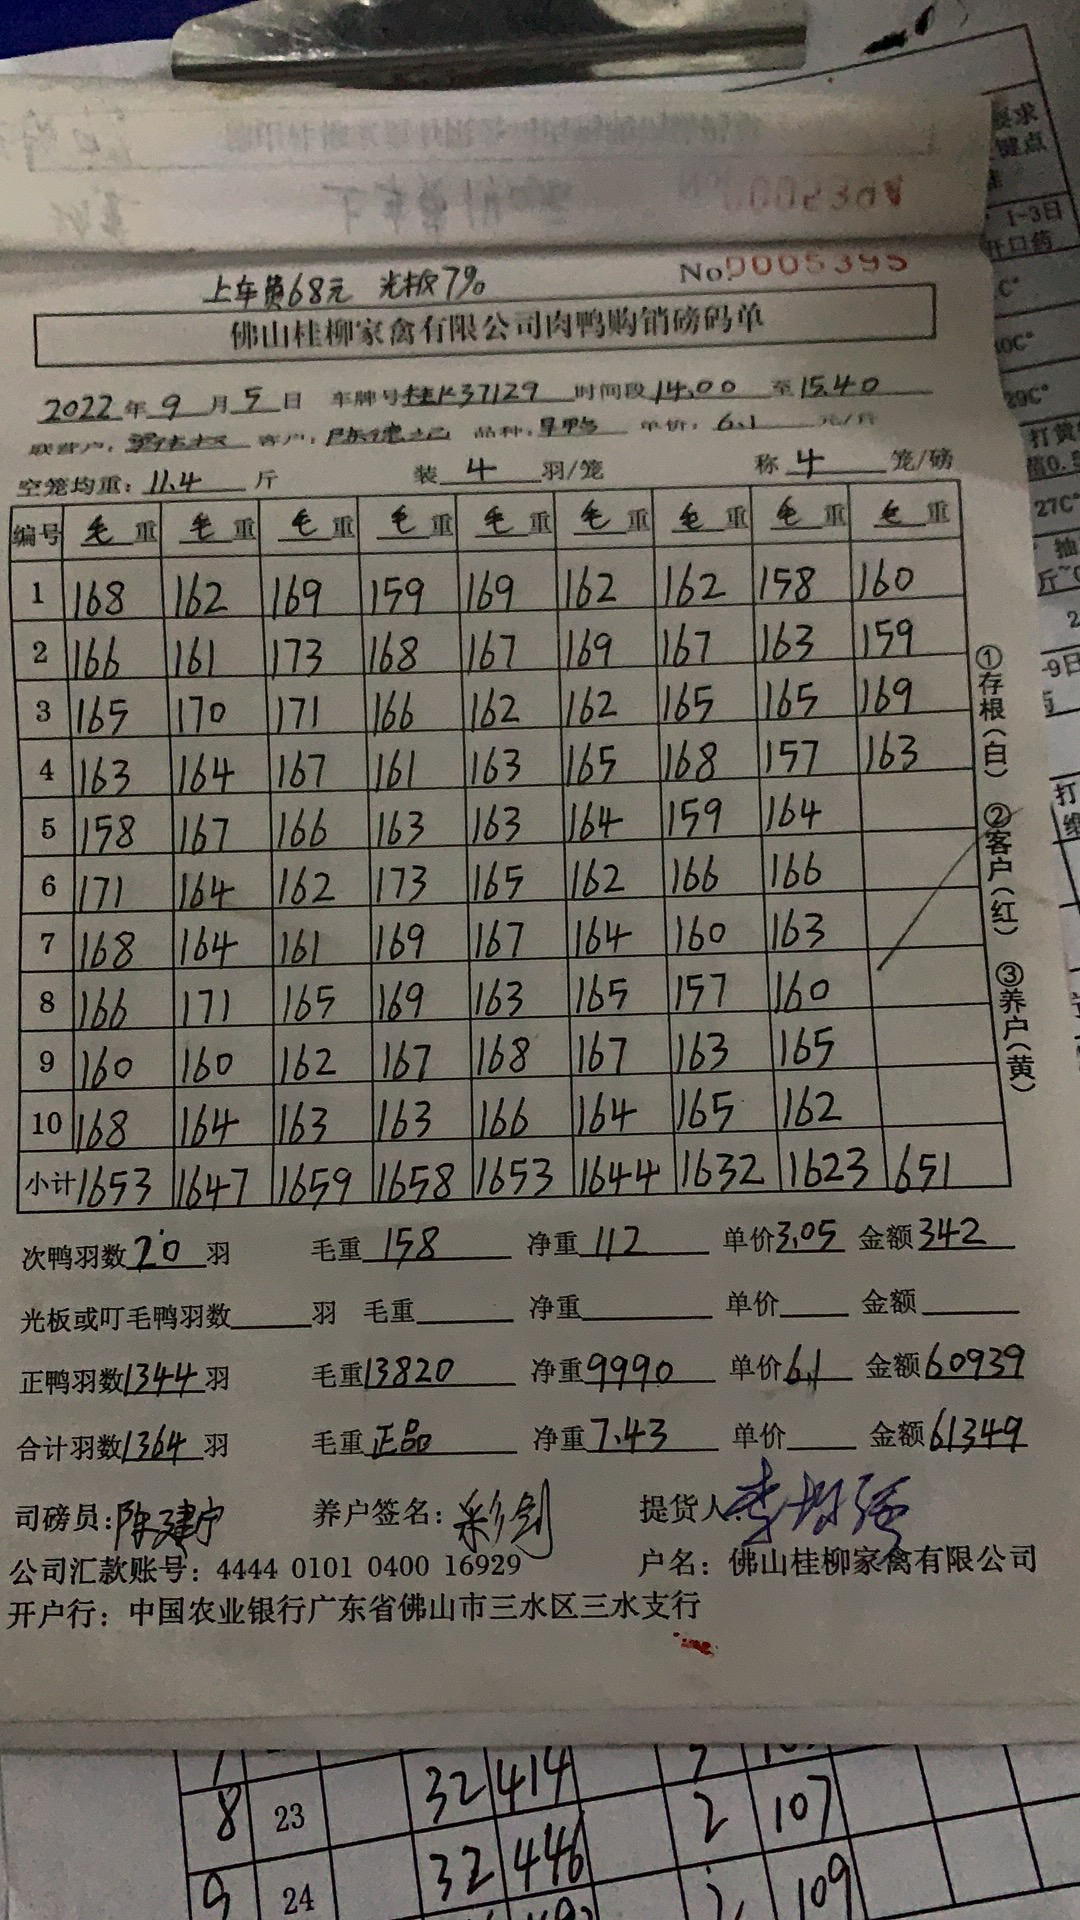 No.0005395
上车费68元 光板7%
佛山桂柳家禽有限公司肉鸭购销磅码单
2022年9月5日 车牌号桂K37129 时间段14.00至15.40
客户: 品种: 单价: 6.1 元/斤
空笼均重: 11.4 斤 装 4 羽/笼 称 4 笼/磅
编号 毛重 毛重 毛重 毛重 毛重 毛重 毛重 毛重 毛重
1 168 162 169 159 169 162 162 158 160
2 166 161 173 168 167 169 167 163 159
3 165 170 171 166 162 162 165 165 169
4 163 164 167 161 163 165 168 157 163
5 158 167 166 163 163 164 159 164
6 171 164 162 173 165 162 166 166
7 168 164 161 169 167 164 160 163
8 166 171 165 169 163 165 157 160
9 160 160 162 167 168 167 163 165
10 168 164 163 163 166 164 165 162
小计 1653 1647 1659 1658 1653 1644 1632 1623 651
①存根(白) ②客户(红) ③养户(黄)
次鸭羽数20羽 毛重158 净重112 单价3.05 金额342
光板或叮毛鸭羽数 羽 毛重 净重 单价 金额
正鸭羽数1344羽 毛重13820 净重9990 单价6.1 金额60939
合计羽数1364羽 毛重正品 净重7.43 单价 金额61349
司磅员: 陈建宁 养户签名: 提货人
公司汇款账号: 4444 0101 0400 16929 户名: 佛山桂柳家禽有限公司
开户行: 中国农业银行广东省佛山市三水区三水支行
32 414
8 23 32 446 2 107
9 24 109
键点
1-3日
开口药
27C°